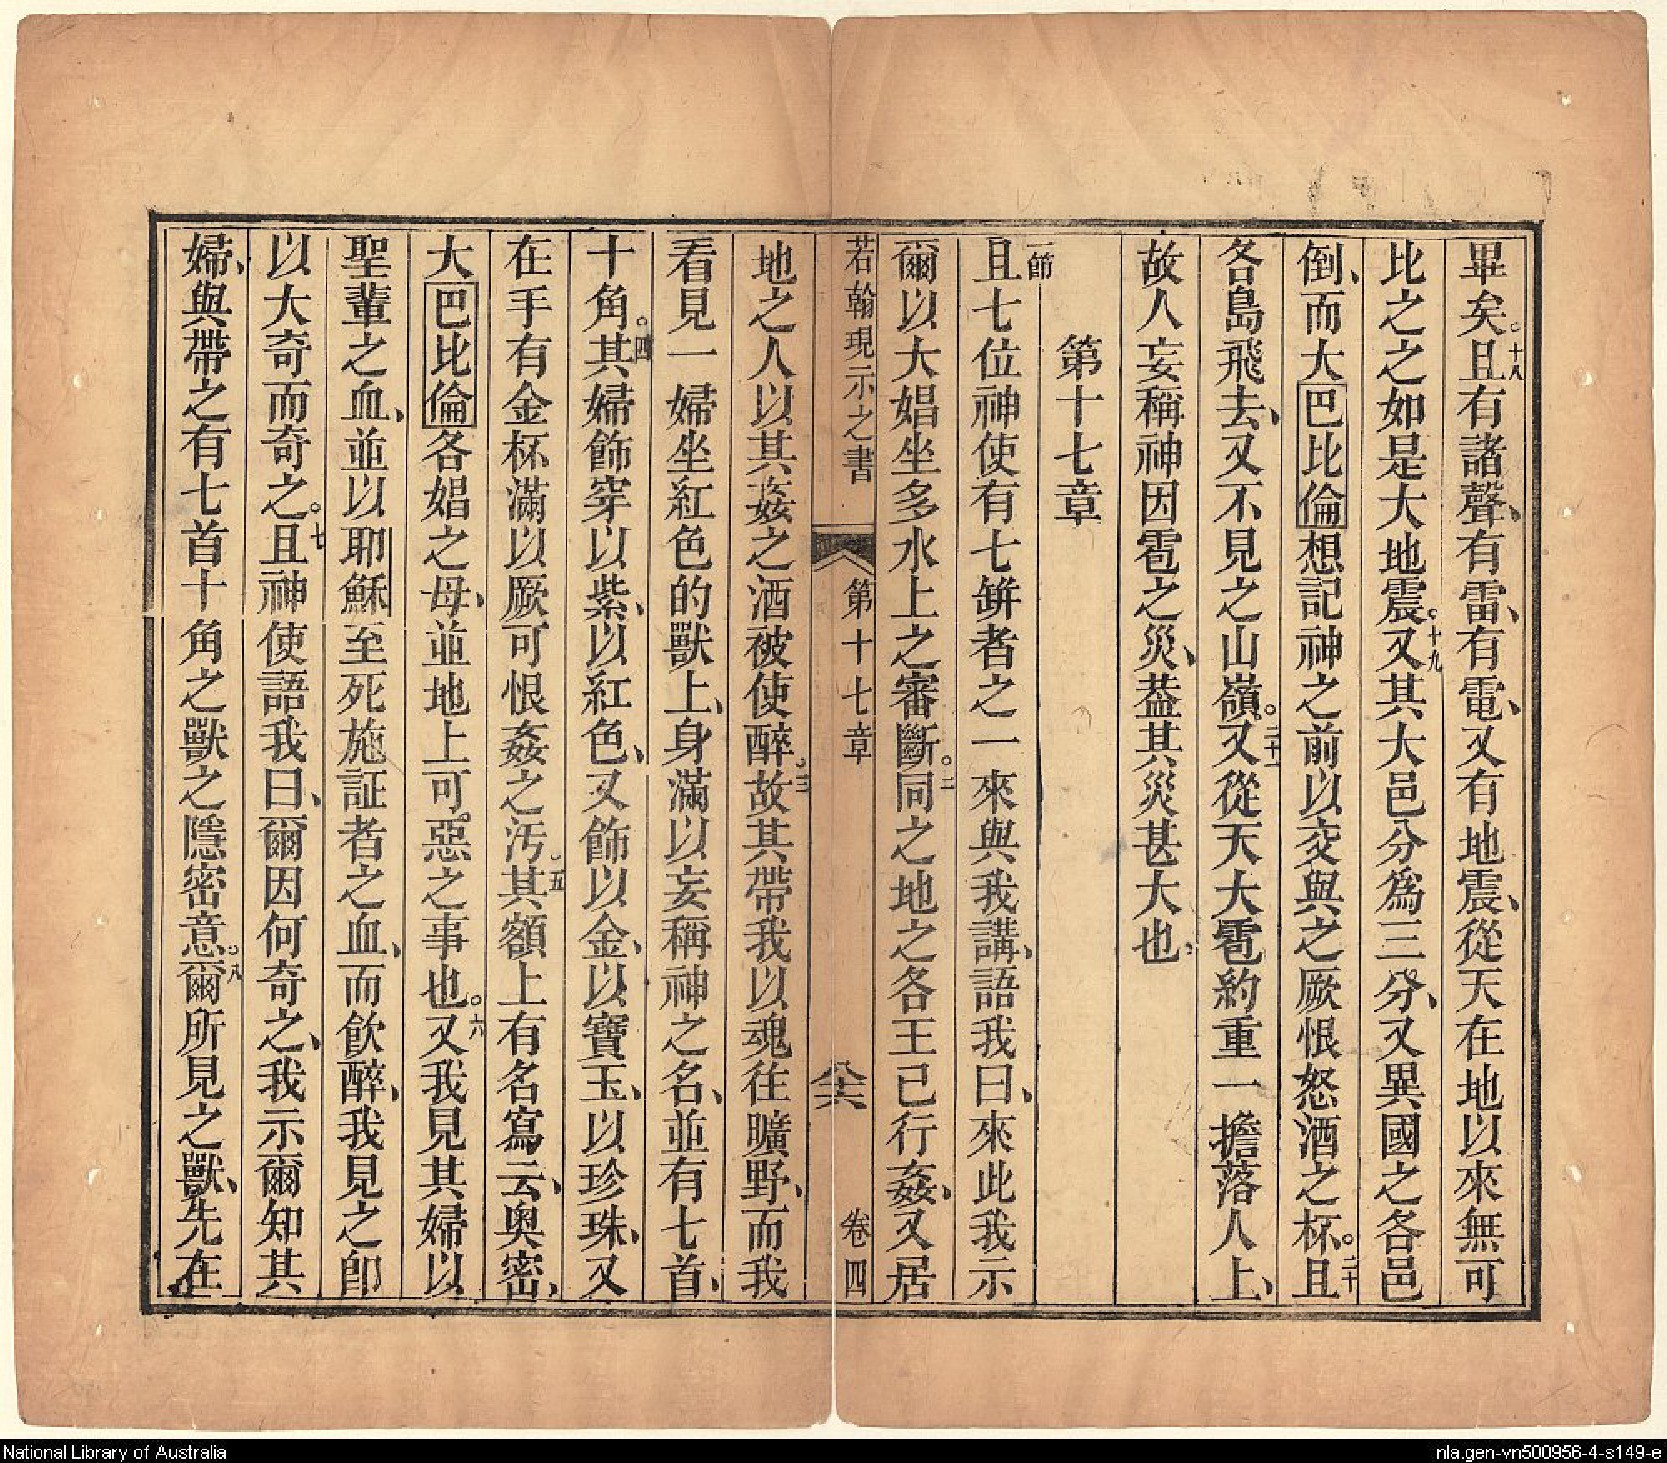 畢矣。十八且有諸聲、有雷、有電、又有地震、從天在地以來無可
比之之如是大地震。十九又其大邑分為三分、又異國之各邑
倒、而大巴比倫想記神之前以交與之厥恨怒酒之杯。二十且
各島飛去、又不見之山嶺。二十一又從天大雹約重一擔落人上、
故人妄稱神因雹之災、葢其災甚大也、
第十七章
一節且七位神使有七缾者之一來與我講、語我曰、來此我示
爾以大娼坐多水上之審斷。二同之地之各王已行姦、又居
若翰現示之書 第十七章 八六 卷四
地之人以其姦之酒被使醉。三故其帶我以魂徃曠野、而我
看見一婦坐紅色的獸上、身滿以妄稱神之名、並有七首、
十角。四其婦飾穿以紫、以紅色、又飾以金、以寶玉、以珍珠、又
在手有金杯滿以厥可恨姦之汚。五其額上有名寫云、奧密、
大巴比倫各娼之母、並地上可惡之事也。六又我見其婦以
聖輩之血、並以耶穌至死施証者之血、而飲醉、我見之卽
以大奇而奇之。七且神使語我曰、爾因何奇之、我示爾知其
婦、與帶之有七首十角之獸之隱密意。八爾所見之獸、先在
National Library of Australia
nla.gen-vn500956-4-s149-e